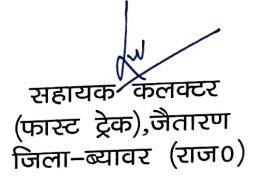 सहायक कलक्टर
(फास्ट ट्रेक),जैतारण
जिला-ब्यावर (राज0)